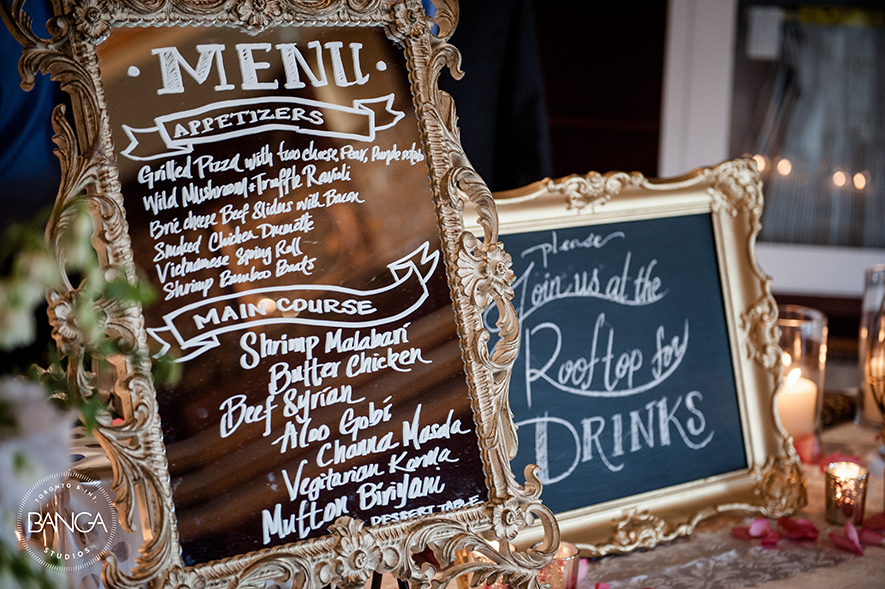 · MENU ·
APPETIZERS
Grilled Pizza with two cheese Pear, Purple potato
Wild Mushroom + Truffle Ravioli
Brie cheese Beef Sliders with Bacon
Smoked Chicken Drumette
Vietnamese Spring Roll
Shrimp Bamboo Boats
MAIN COURSE
Shrimp Malabari
Butter Chicken
Beef Syrian
Aloo Gobi
Channa Masala
Vegitarian Korma
Mutton Biriyani
DESSERT TABLE
please
Join us at the
Rooftop for
DRINKS
TORONTO & INT.
BANGA
STUDIOS